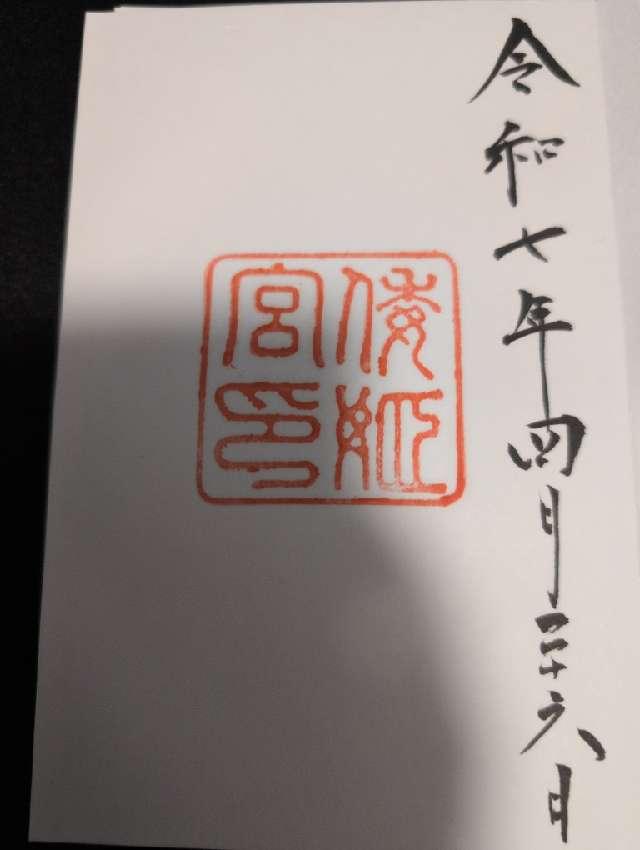 令和七年四月二十六日
倭姫
宮印